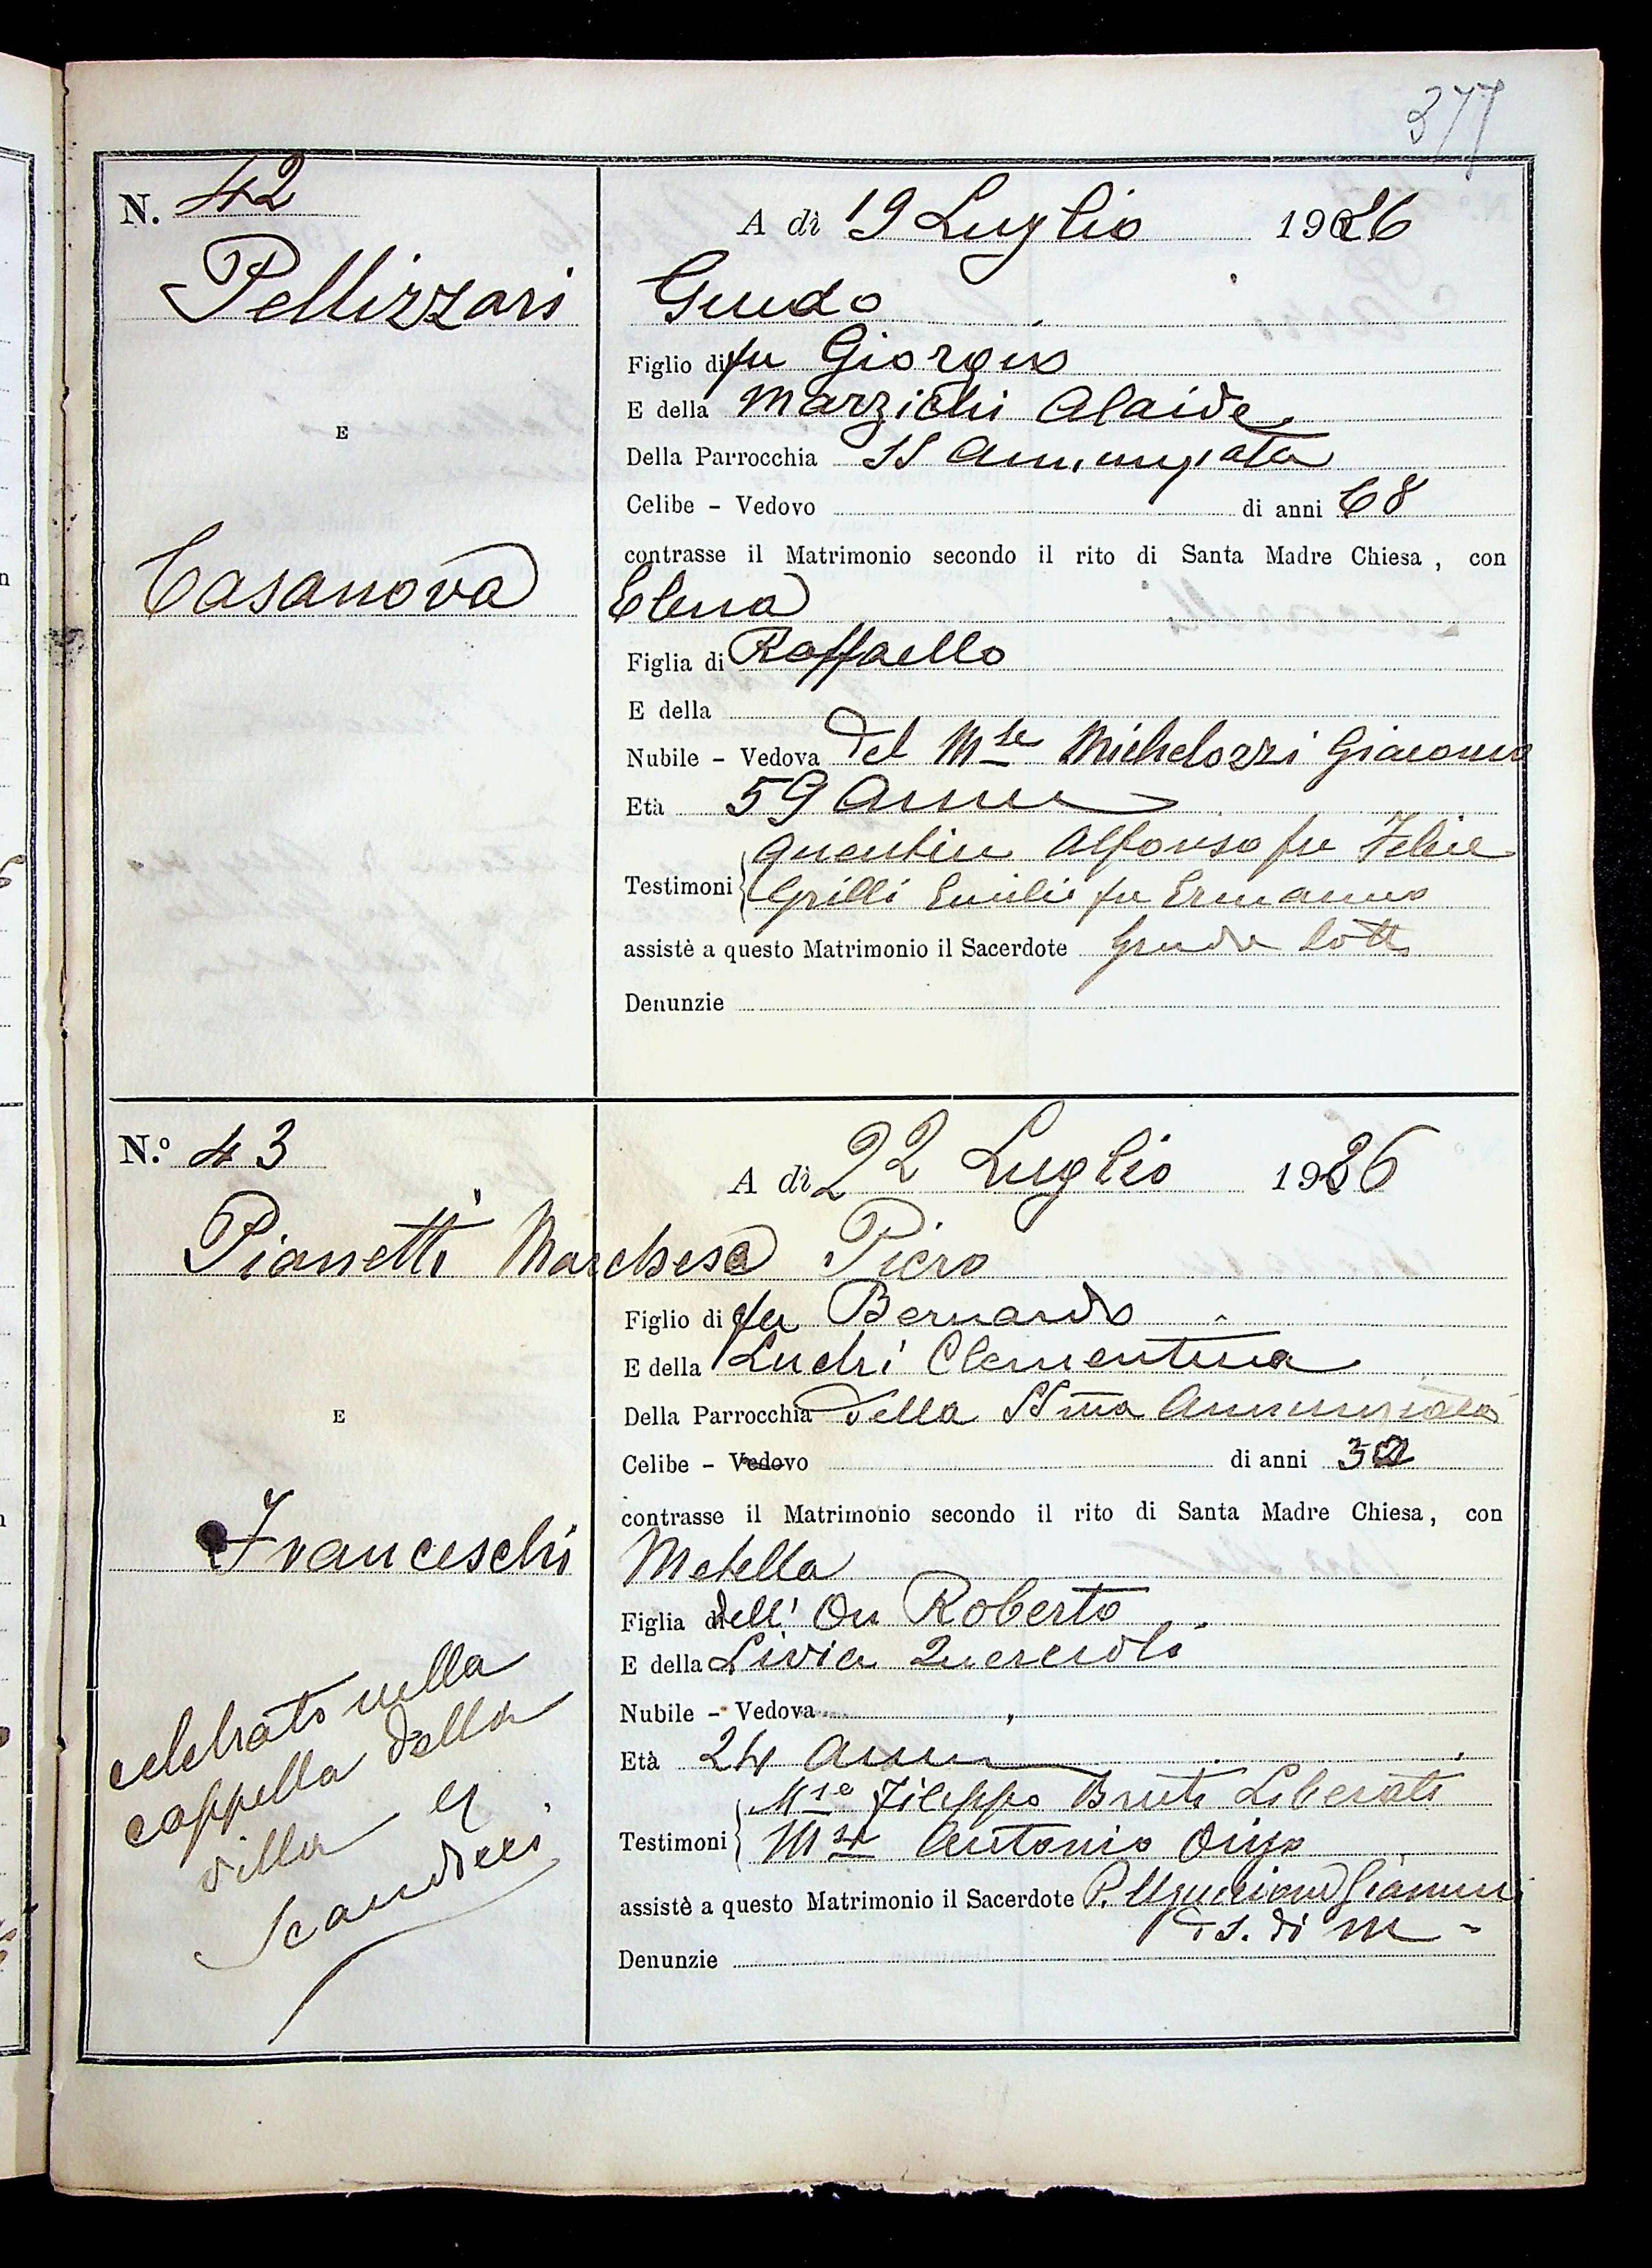 377
N. 42
A dì 19 Luglio 1926
Pellizzari
Guido
Figlio di fu Giorgio
E della Marzichi Alaide
E
Della Parrocchia SS Annunziata
Celibe - Vedovo di anni 68
contrasse il Matrimonio secondo il rito di Santa Madre Chiesa, con
Casanova
Elena
Figlia di Raffaello
E della
Nubile - Vedova del Mse Michelozzi Giacomo
Età 59 Anni
Alfonso fu Felice
Testimoni Grilli Emilio fu Ermanno
assistè a questo Matrimonio il Sacerdote
Denunzie
N.º 43
A dì 22 Luglio 1926
Pianetti Marchese Piero
Figlio di fu Bernardo
E della Luchi Clementina
E
Della Parrocchia della SSma Annunziata
Celibe - Vedovo di anni 32
contrasse il Matrimonio secondo il rito di Santa Madre Chiesa, con
Franceschi
Metella
Figlia di dell' On Roberto
E della Livia Quercioli
Nubile - Vedova
Età 24 anni
Mse Filippo Bruti Liberati
Testimoni Mse Antonio Origo
assistè a questo Matrimonio il Sacerdote P. Uguccione Giannini
d S. di M -
Denunzie
celebrato nella
cappella della
villa
Scandicci